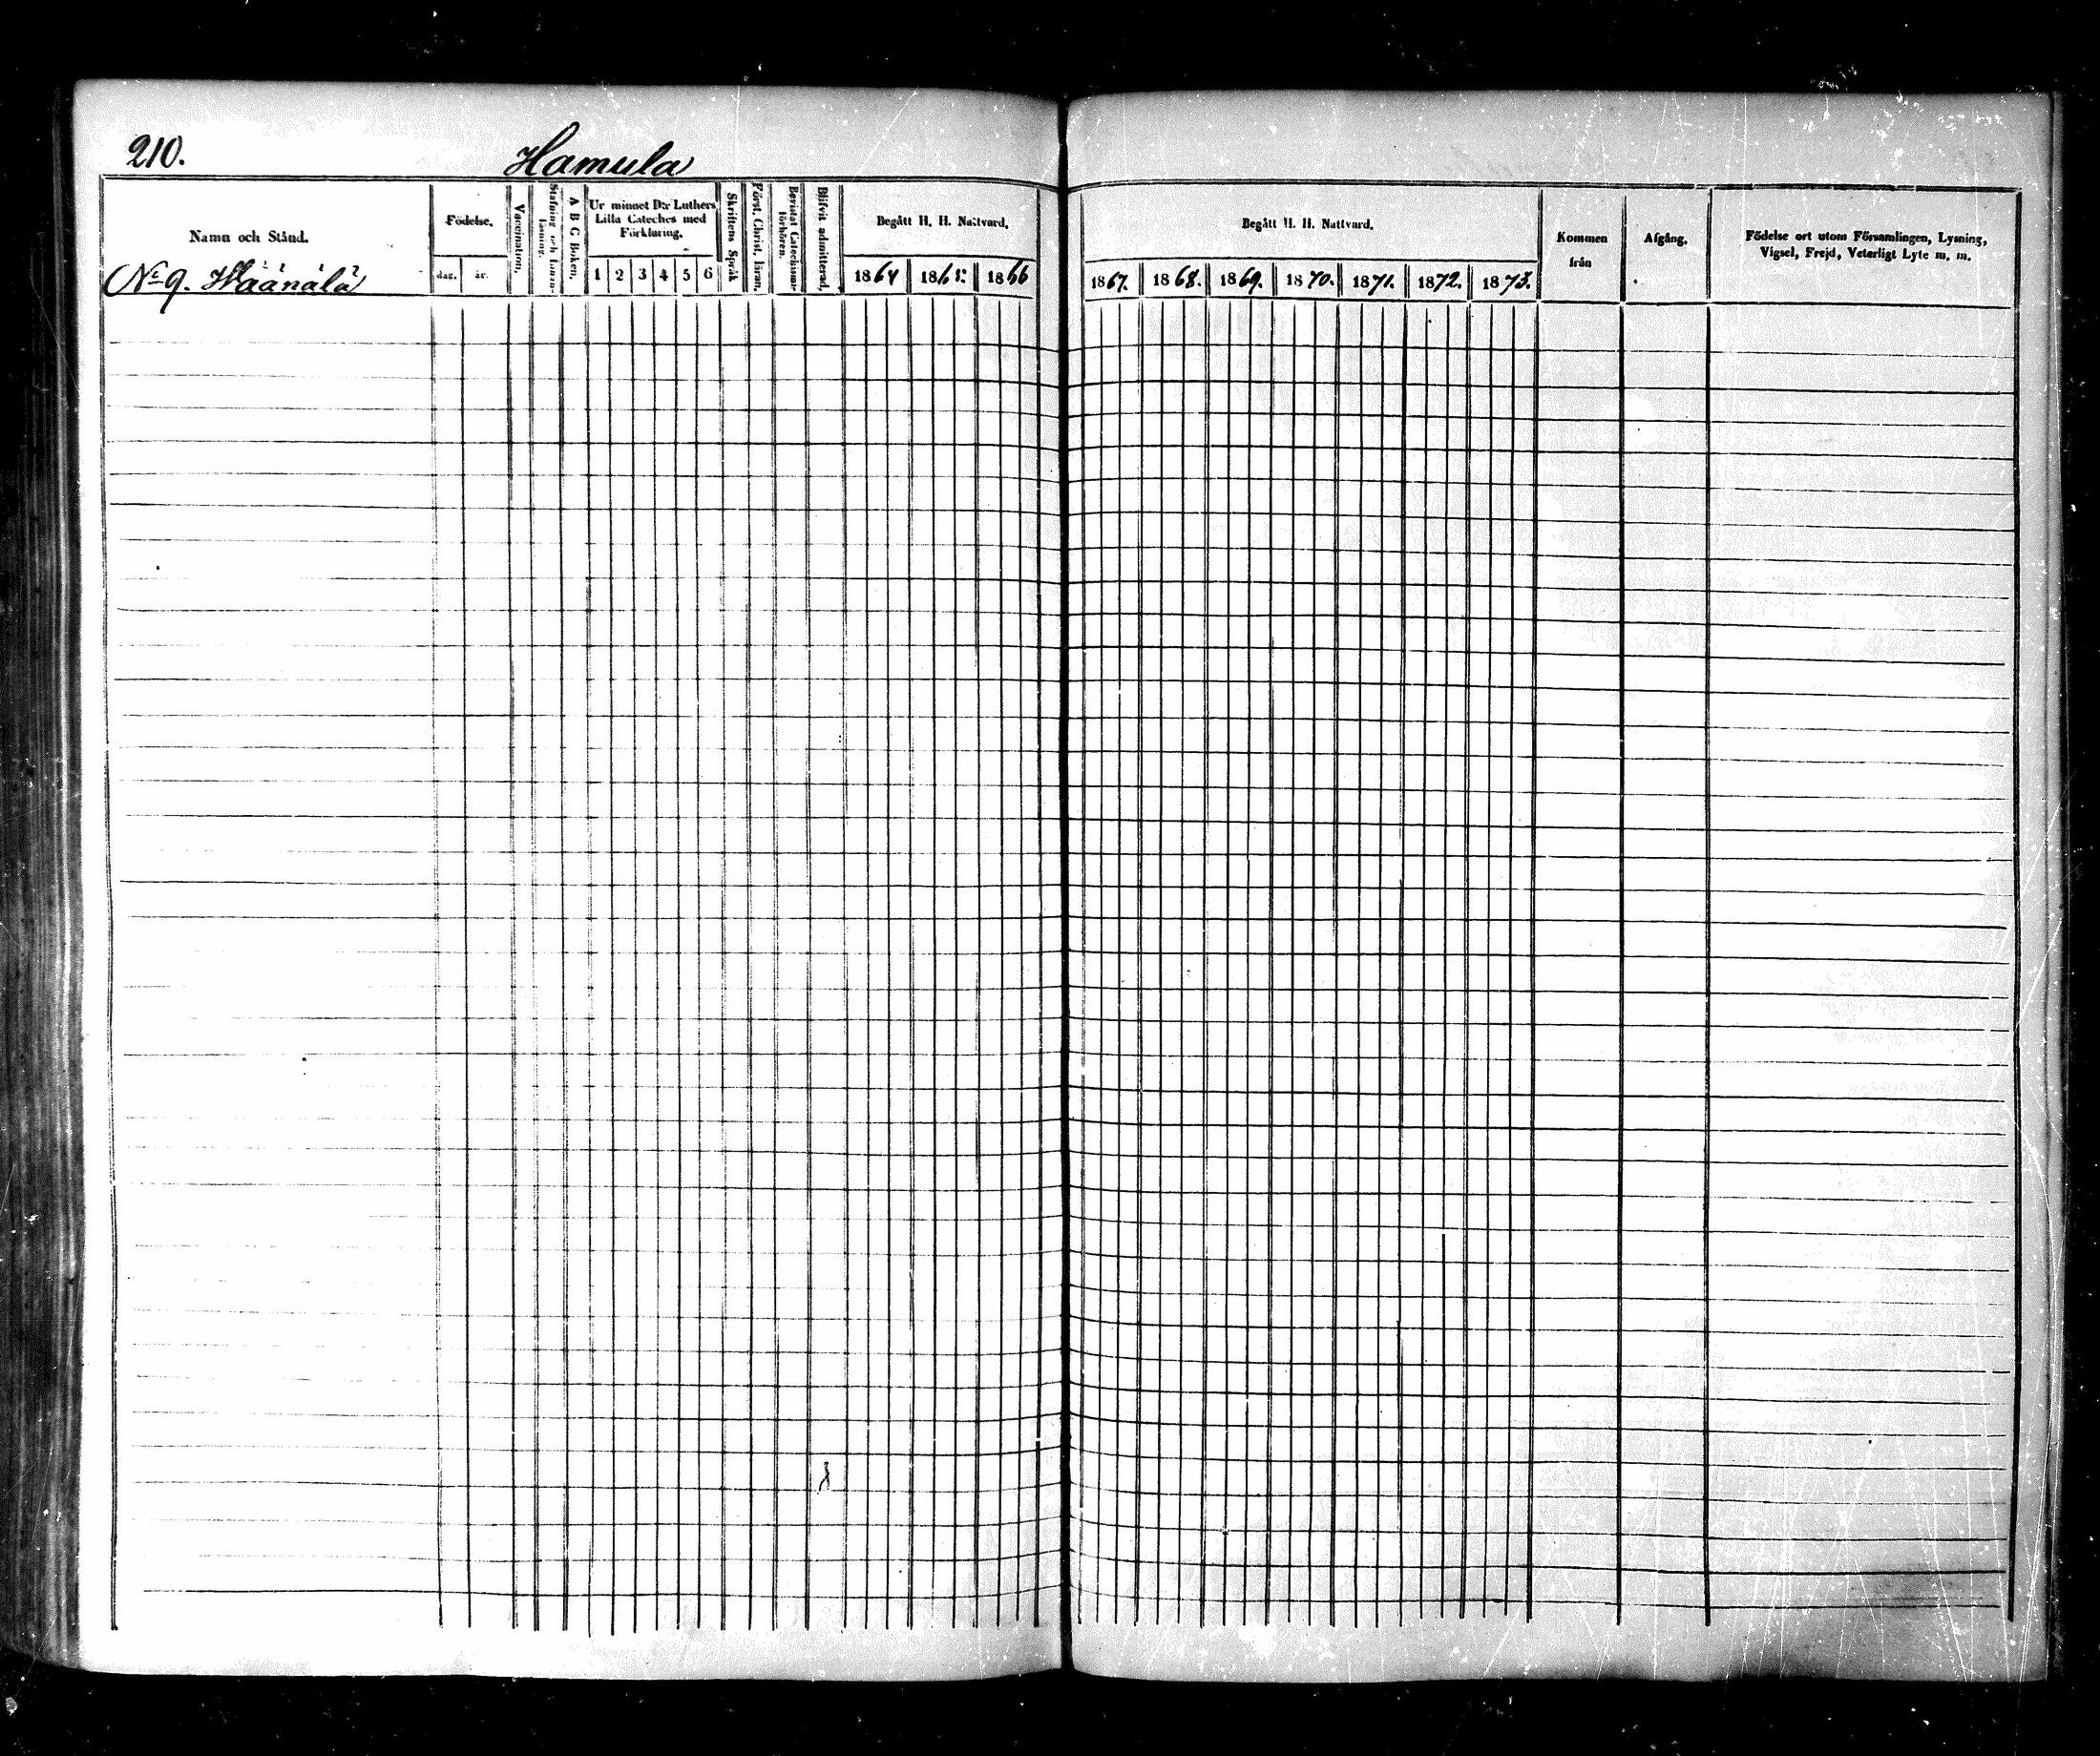 210.
Hamula
Namn och Stånd.
Födelse.
dag. år.
Vaccination.
Stafning och Innan-läsning.
A B C Boken.
Ur minnet D:r Luthers Lilla Cateches med Förklaring.
1 2 3 4 5 6
Skriftens Språk
Först. Christ. läran.
Bevistat Catechismi-förhören.
Blifvit admitterad.
Begått H. H. Nattvard.
1864 1865. 1866
Begått H. H. Nattvard.
1867. 1868. 1869. 1870. 1871. 1872. 1873.
Kommen från
Afgång.
Födelse ort utom Församlingen, Lysning,
Vigsel, Frejd, Veterligt Lyte m. m.
No 9. Häänälä